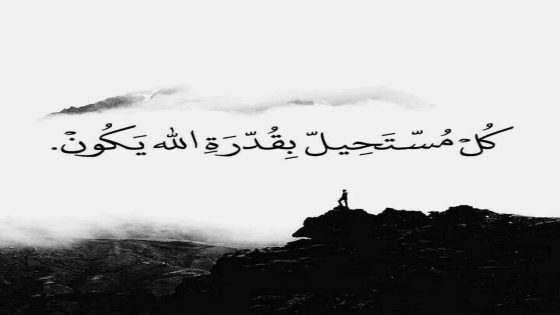 كُلْ مُسّتَحِيلّ بِقُدّرَةِ الله يَكُونْ.